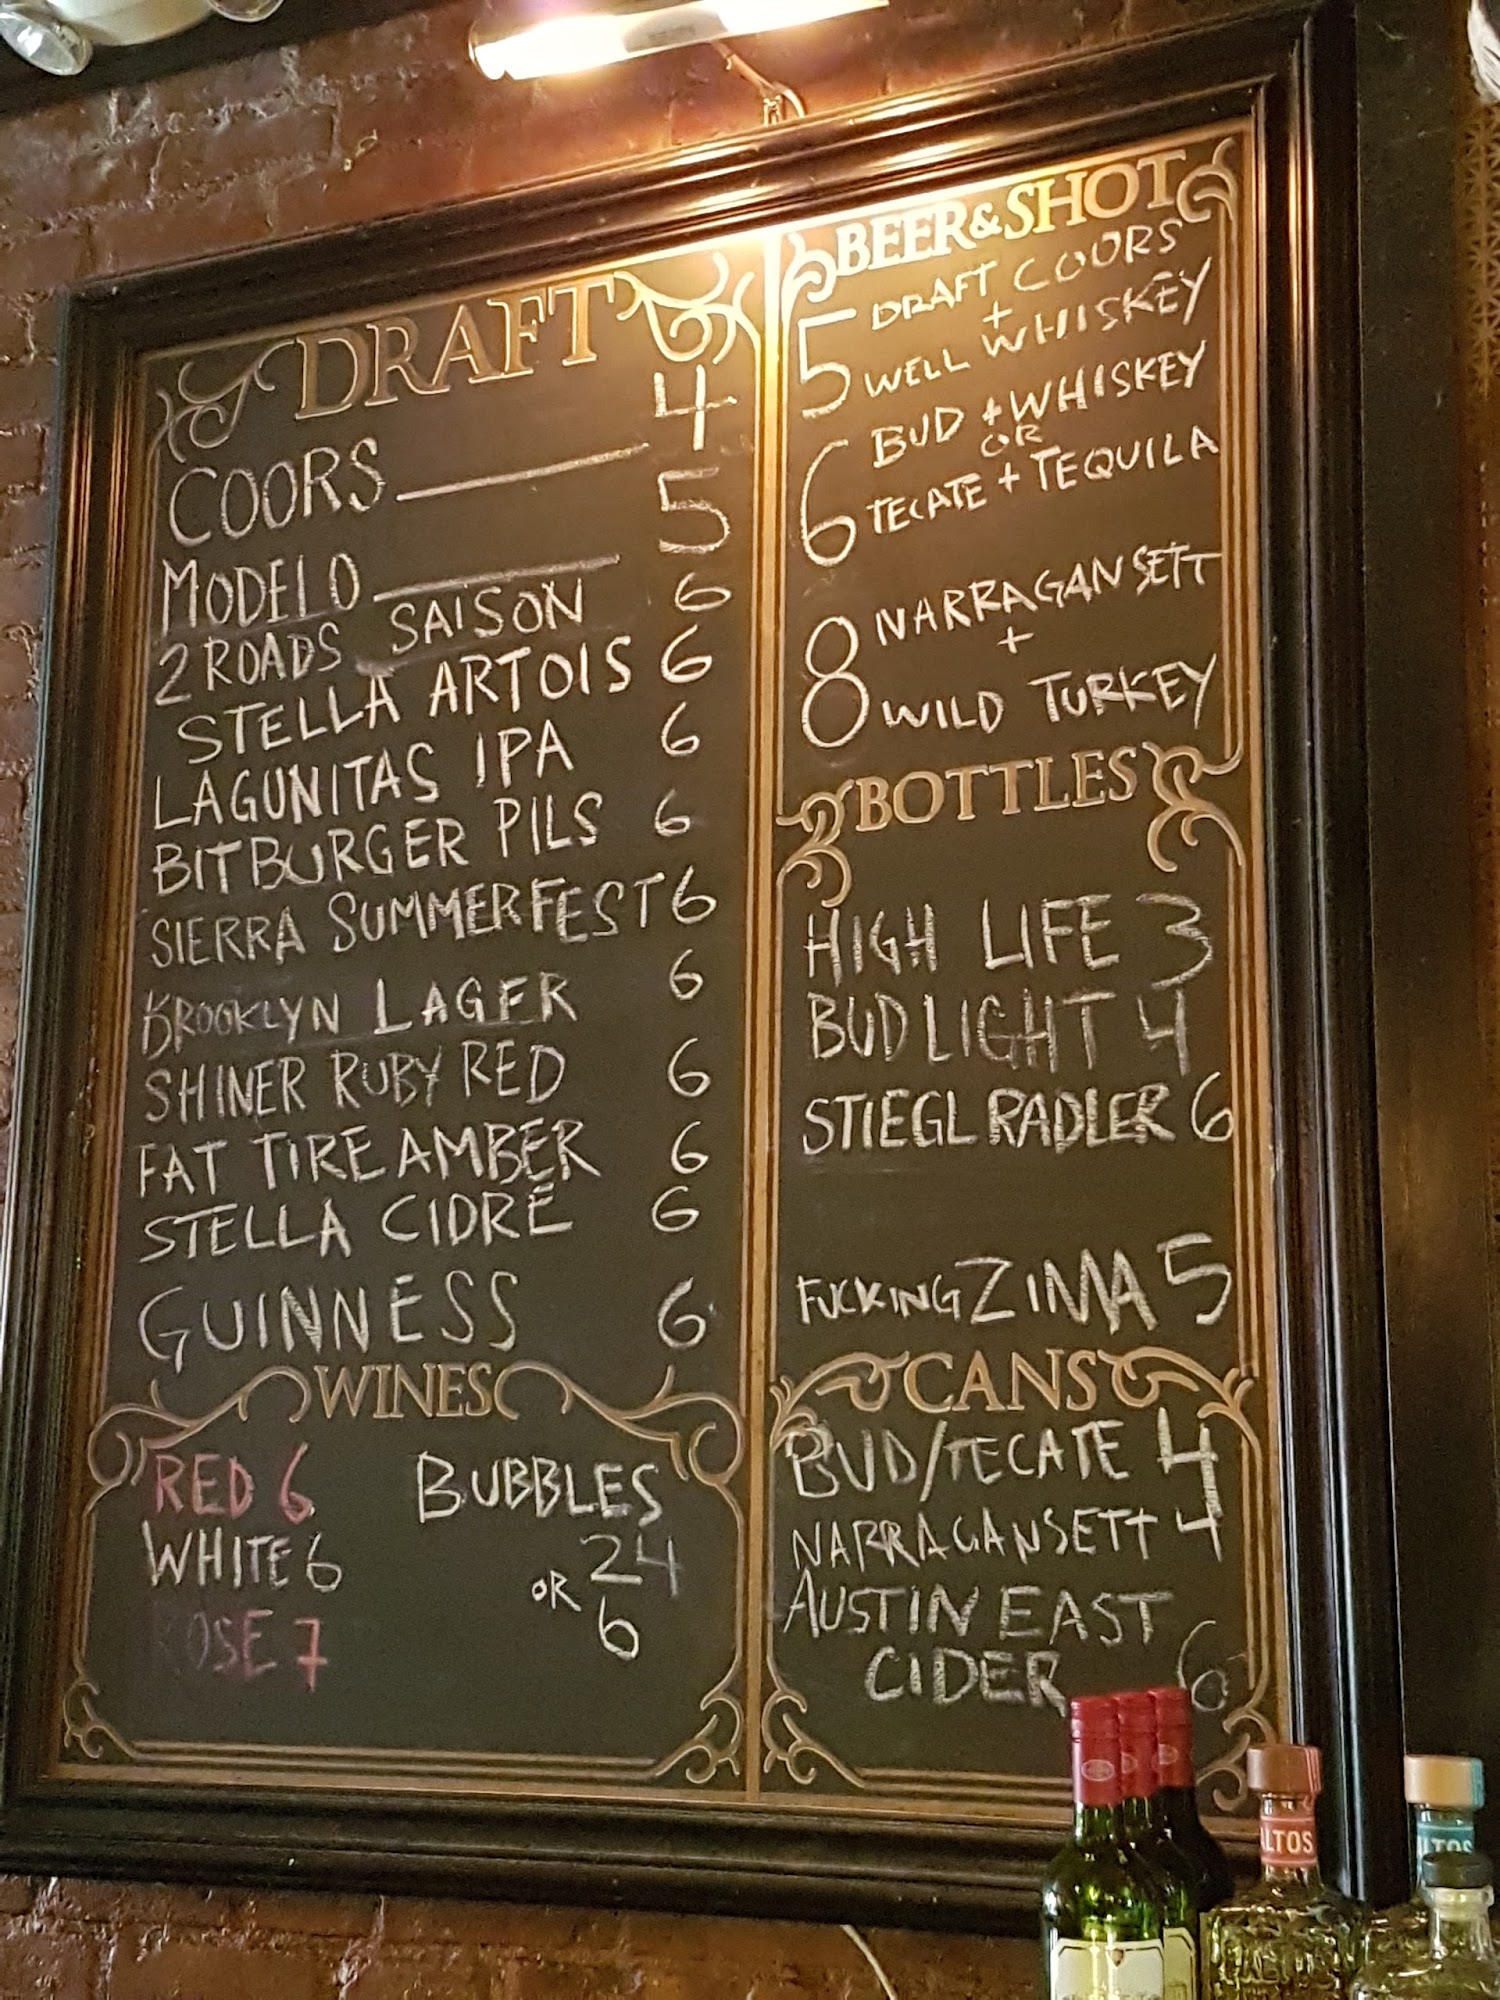 DRAFT
COORS 4
MODELO 5
2 ROADS SAISON 6
STELLA ARTOIS 6
LAGUNITAS IPA 6
BITBURGER PILS 6
SIERRA SUMMERFEST 6
BROOKLYN LAGER 6
SHINER RUBY RED 6
FAT TIRE AMBER 6
STELLA CIDRE 6
GUINNESS 6
WINES
RED 6
WHITE 6
ROSE 7
BUBBLES
24
OR 6
BEER & SHOT
5 DRAFT COORS
+
WELL WHISKEY
6 BUD + WHISKEY
OR
TECATE + TEQUILA
8 NARRAGANSETT
+
WILD TURKEY
BOTTLES
HIGH LIFE 3
BUD LIGHT 4
STIEGL RADLER 6
FUCKING ZIMA 5
CANS
BUD/TECATE 4
NARRAGANSETT 4
AUSTIN EAST
CIDER 6
ALTOS
ALTOS